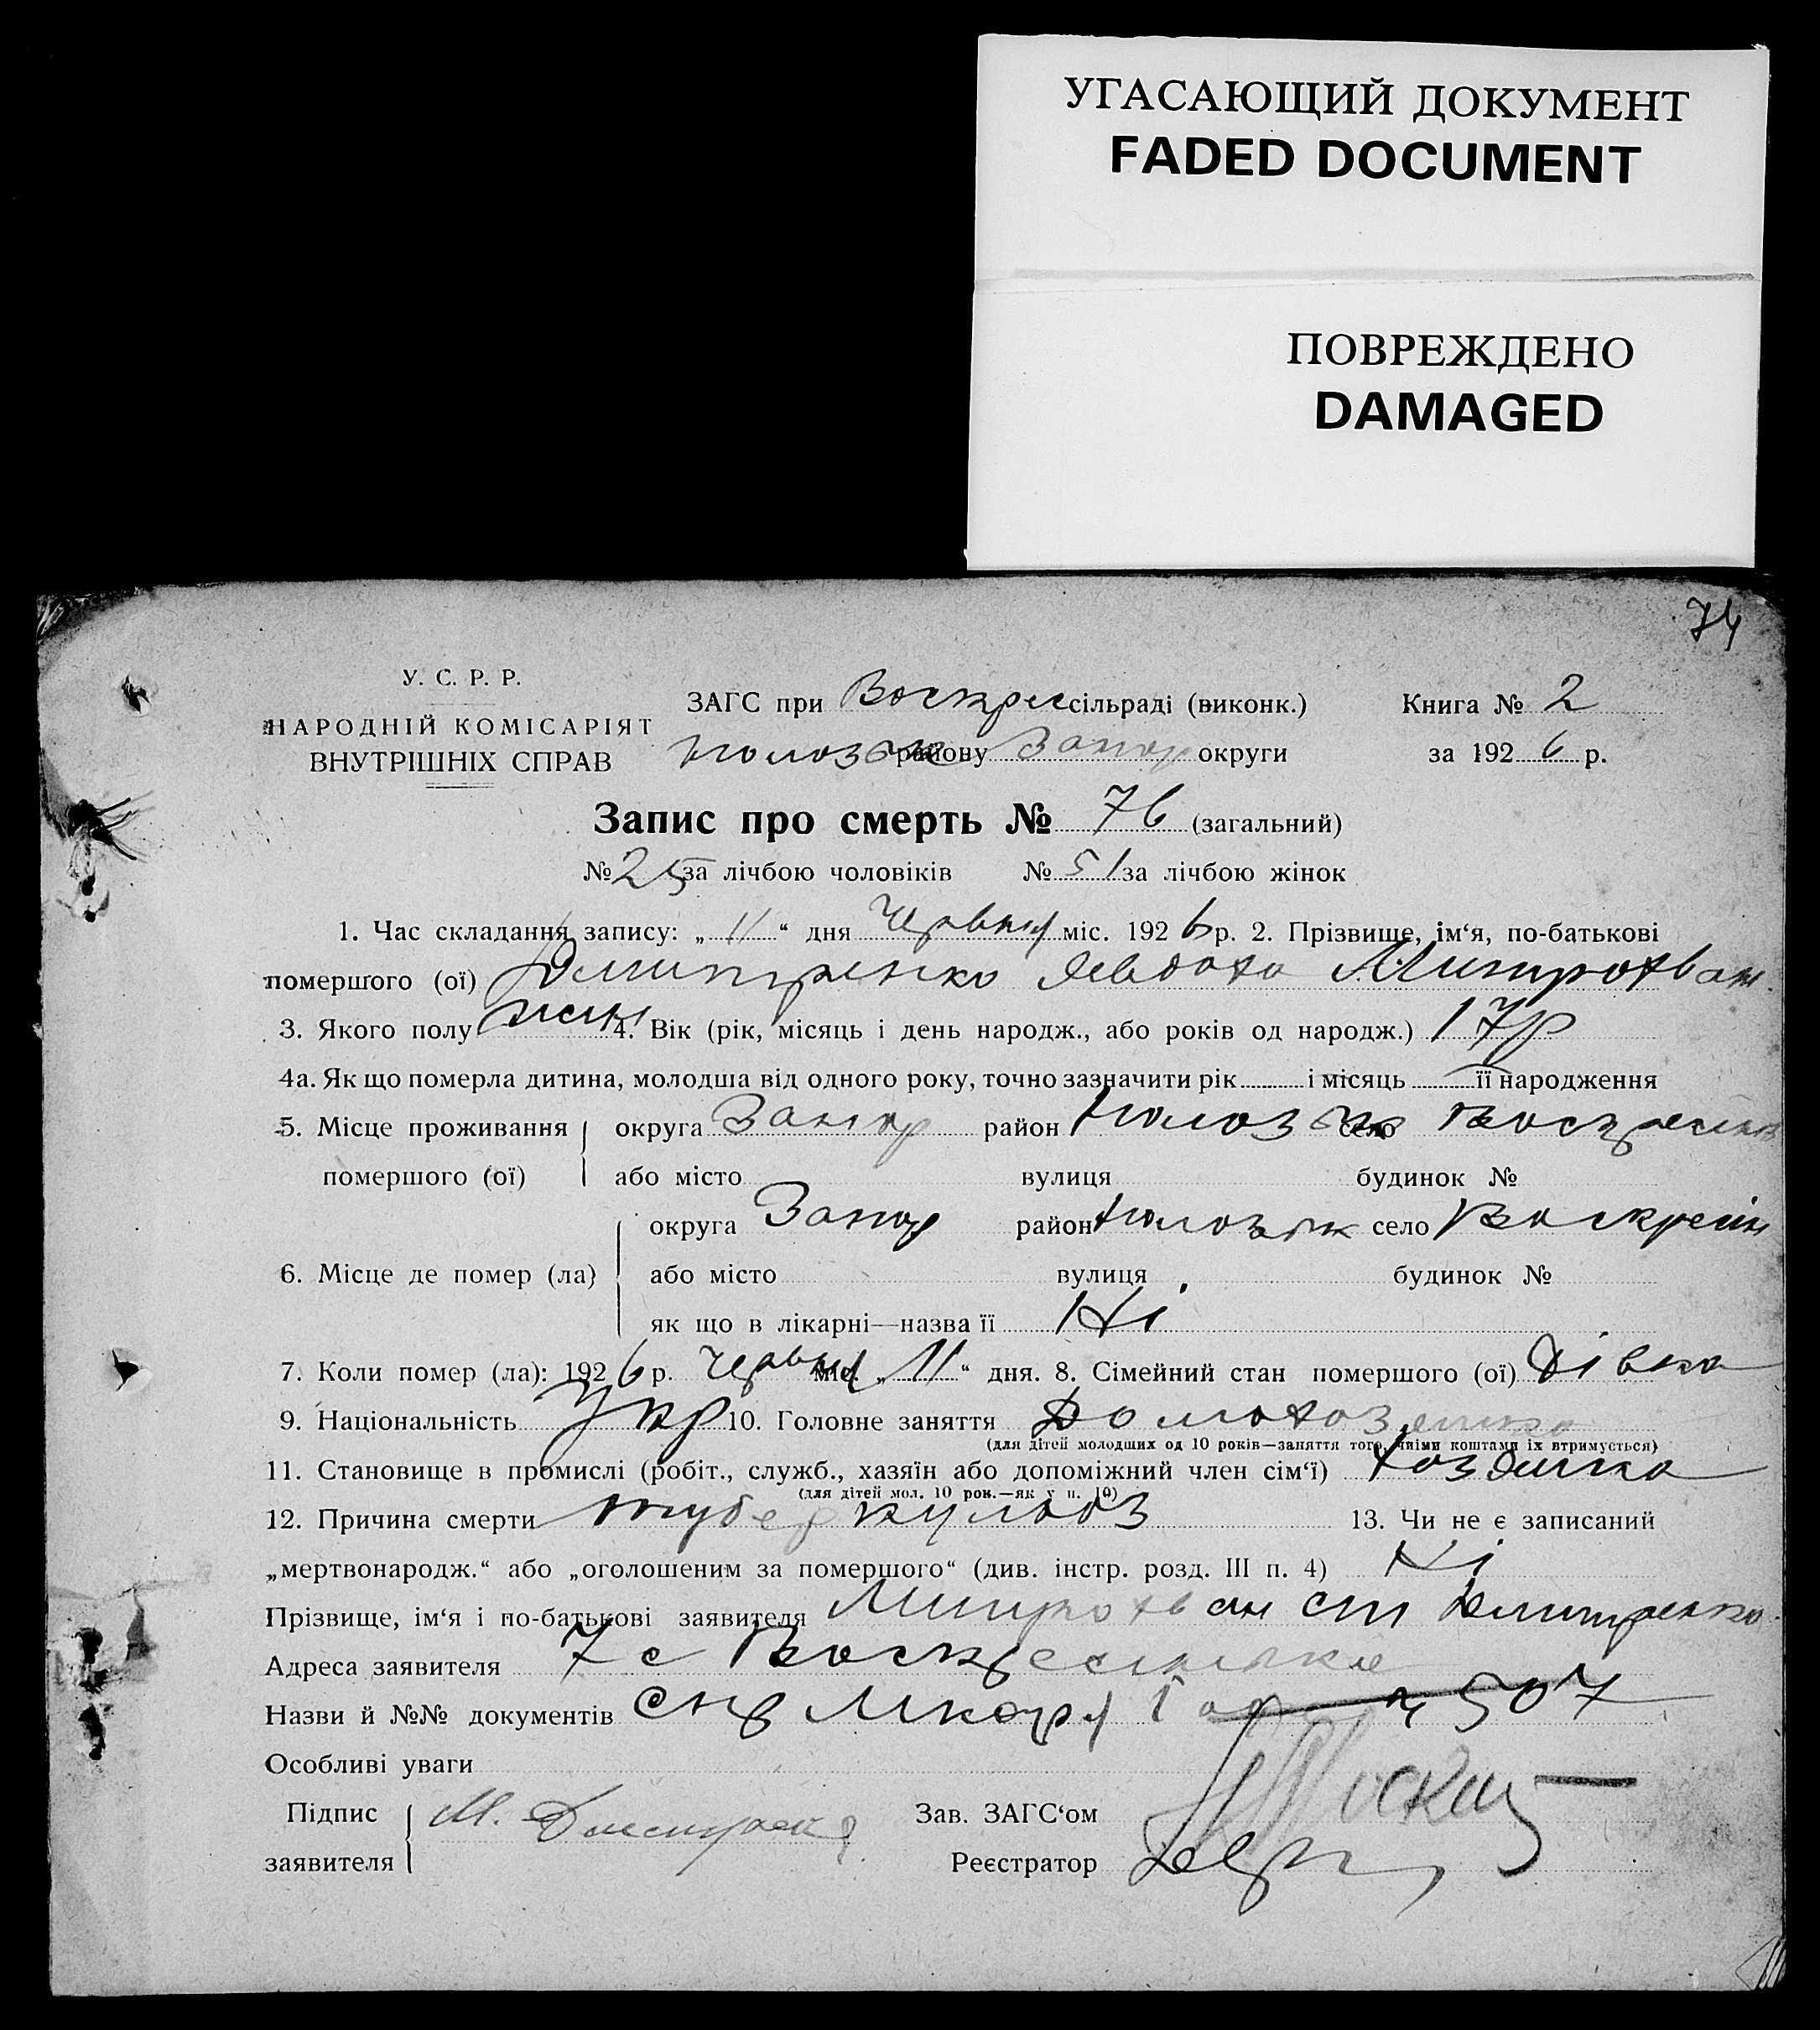 УГАСАЮЩИЙ ДОКУМЕНТ
FADED DOCUMENT
ПОВРЕЖДЕНО
DAMAGED
74
У. С. Р. Р.
НАРОДНІЙ КОМІСАРІЯТ
ВНУТРІШНІХ СПРАВ
ЗАГС при Воскрес сільраді (виконк.)
району Запор округи
Книга № 2
за 1926 р.
Запис про смерть № 76 (загальний)
№ 25 за лічбою чоловіків № 51 за лічбою жінок
1. Час складання запису: „ 11 “ дня Червня міс. 1926 р. 2. Прізвище, ім‘я, по-батькові
помершого (ої) Дмитренко Явдоха Митрохван
3. Якого полу жін 4. Вік (рік, місяць і день народж., або років од народж.) 17 р
4а. Як що померла дитина, молодша від одного року, точно зазначити рік і місяць її народження
5. Місце проживання помершого (ої) округа Запор район село
або місто вулиця будинок №
6. Місце де помер (ла) округа Запор район село
або місто вулиця будинок №
як що в лікарні—назва її Ні
7. Коли помер (ла): 1926 р. Червня міс. „ 11 “ дня. 8. Сімейний стан помершого (ої) Дівка
9. Національність Укр 10. Головне заняття Домохозяйка
(для дітей молодших од 10 років—заняття того, чиїми коштами їх втримується)
11. Становище в промислі (робіт., служб., хазяїн або допоміжний член сім‘ї) хозяйка
(для дітей мол. 10 рок.—як у п. 10)
12. Причина смерти туберкульоз 13. Чи не є записаний
„мертвонародж.“ або „оголошеним за помершого“ (див. інстр. розд. III п. 4) Ні
Прізвище, ім‘я і по-батькові заявителя Митрохван Ст Дмитренко
Адреса заявителя с Воскресенка
Назви й №№ документів 507
Особливі уваги
Підпис заявителя М. Дмитренко
Зав. ЗАГС‘ом
Реєстратор